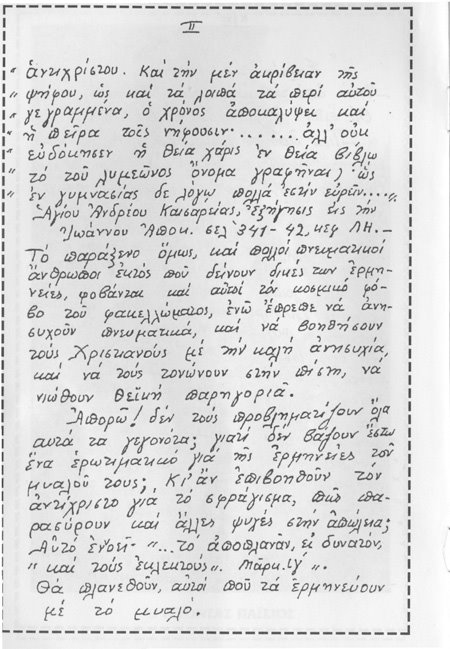 II
„ ἀντιχρίστου. Καί τήν μέν ἀκρίβειαν τῆς
„ ψήφου, ὡς καί τά λοιπά τά περί αὐτοῦ
„ γεγραμμένα, ὁ χρόνος ἀποκαλύψει καί
„ ἡ πεῖρα τοῖς νήφουσιν........ἀλλ' οὐκ
„ εὐδόκησεν ἡ θεία χάρις ἐν θεία βίβλω
„ τό τοῦ λυμεῶνος ὄνομα γραφῆναι, ὡς
„ ἐν γυμνασίας δε λόγω πολλά ἐστίν εὑρεῖν....„
Ἁγίου Ἀνδρέου Καισαρείας, Ἐξήγησις εἰς τήν
Ἰωάννου Ἀποκ. σελ 341-42, κεφ ΛΗ.-
Τό παράξενο ὅμως, καί πολλοί πνευματικοί
ἄνθρωποι ἐκτός πού δείνουν δικές των ἑρμη-
νείες, φοβάνται καί αὐτοί τόν κοσμικό φό-
βο τοῦ φακελλώματος, ἐνῶ ἔπρεπε νά ἀνη-
συχοῦν πνευματικά, καί νά βοηθήσουν
τούς Χριστιανούς μέ τήν καλή ἀνησυχία,
καί νά τούς τονώνουν στήν πίστη, νά
νιώθουν θεϊκή παρηγοριά.
Ἀπορῶ! δέν τούς προβληματίζουν ὅλα
αυτά τα γεγονότα; γιατί δέν βάζουν ἔστω
ἕνα ἐρωτηματικό γιά τῆς ἑρμηνείες τοῦ
μυαλοῦ τους; Κι' ἄν ἐπιβοηθοῦν τόν
ἀντίχριστο γιά τό σφράγισμα, πῶς πα-
ρασύρουν καί ἄλλες ψυχές στήν ἀπώλεια;
Αὐτό ἐνοεῖ- „...τό ἀποπλανᾶν, εἰ δυνατόν,
„ καί τούς ἐκλεκτούς„. Μάρκ. ιγ' „.
Θά πλανεθοῦν, αὐτοί πού τά ἑρμηνεύουν
μέ τό μυαλό.